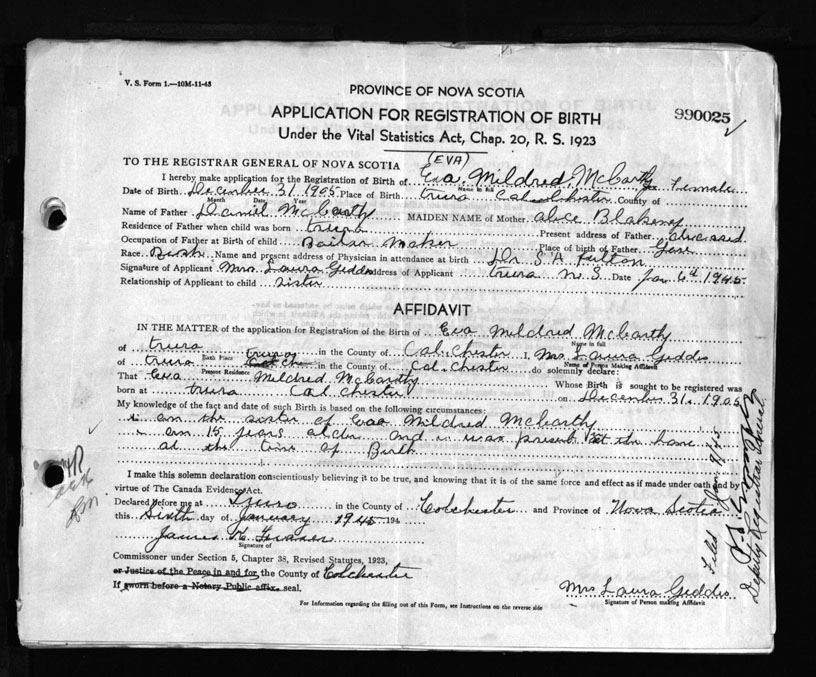 V. S. Form 1.—10M-11-43
PROVINCE OF NOVA SCOTIA
APPLICATION FOR REGISTRATION OF BIRTH
990025
Under the Vital Statistics Act, Chap. 20, R. S. 1923
TO THE REGISTRAR GENERAL OF NOVA SCOTIA
(EVA)
I hereby make application for the Registration of Birth of Eva Mildred McCarthy Sex Female
Name in full
Date of Birth December 31 1905 Place of Birth truro Cal Chester County of
Month Date Year
Name of Father Daniel McCarthy MAIDEN NAME of Mother Alice Blakeney
Residence of Father when child was born truro Present address of Father deceased
Occupation of Father at Birth of child Boilar Maker Place of birth of Father
Race Name and present address of Physician in attendance at birth Dr S A Fulton
Signature of Applicant Mrs Laura Geddis Address of Applicant truro N.S. Date Jan 6th 1945
Relationship of Applicant to child sister
AFFIDAVIT
IN THE MATTER of the application for Registration of the Birth of Eva Mildred McCarthy
Name in full
of truro truro in the County of Cal.Chester I, Mrs Laura Geddis
Birth Place Name of Person Making Affidavit
of truro in the County of Col.chester do solemnly declare:
Present Residence
That Eva Mildred McCarthy Whose Birth is sought to be registered was
born at truro Cal Chester on December 31. 1905
My knowledge of the fact and date of such Birth is based on the following circumstances:
i am the sister of Eva Mildred McCarthy
i am 15 years older and i was present at the home
at the time of Birth
I make this solemn declaration conscientiously believing it to be true, and knowing that it is of the same force and effect as if made under oath and by
virtue of The Canada Evidence Act.
Declared before me at Truro in the County of Colchester and Province of Nova Scotia
this Sixth day of January 1945 194
James H Fraser
Signature of
Commissioner under Section 5, Chapter 38, Revised Statutes, 1923,
or Justice of the Peace in and for the County of Colchester
If sworn before a Notary Public affix seal.
Mrs Laura Geddis
Signature of Person making Affidavit
For Information regarding the filling out of this Form, see Instructions on the reverse side
Filed Jan. 9/45
Deputy Registrar General.